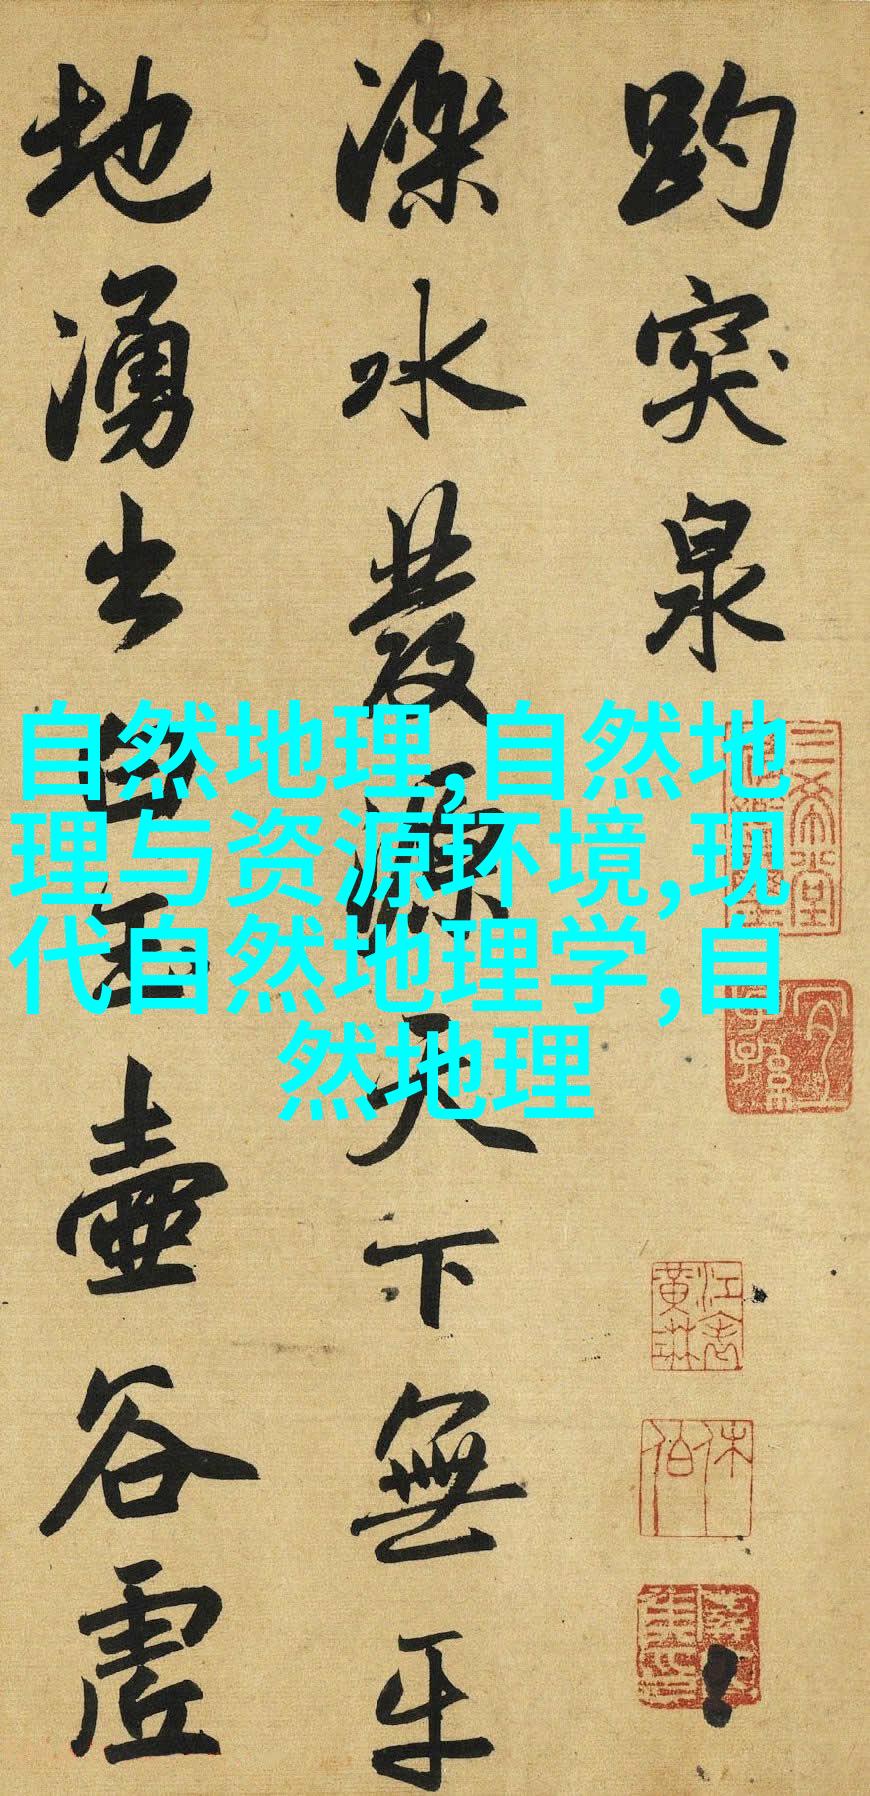 趵突泉
濼水發源天下無平
地湧出白玉壺谷虛
自然地理,自然地
理与资源环境,现
代自然地理学,自
然地理